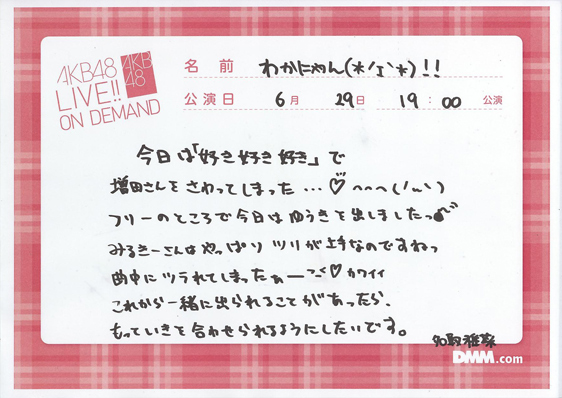 AKB48
LIVE!!
ON DEMAND
AKB
48
名前 わかにゃん(*/ェ\*)!!
公演日 6月 29日 19:00 公演
今日は「好き好き好き」で
増田さんをさわってしまった…♡
フリーのところで今日はゆうきを出しましたっ
みるきーさんはやっぱり ツリが上手なのですねっ
曲中にツラれてしまったぁー ♡カワイイ
これから一緒に出られることがあったら、
もっといきを合わせられるようにしたいです。
名取稚菜
DMM.com